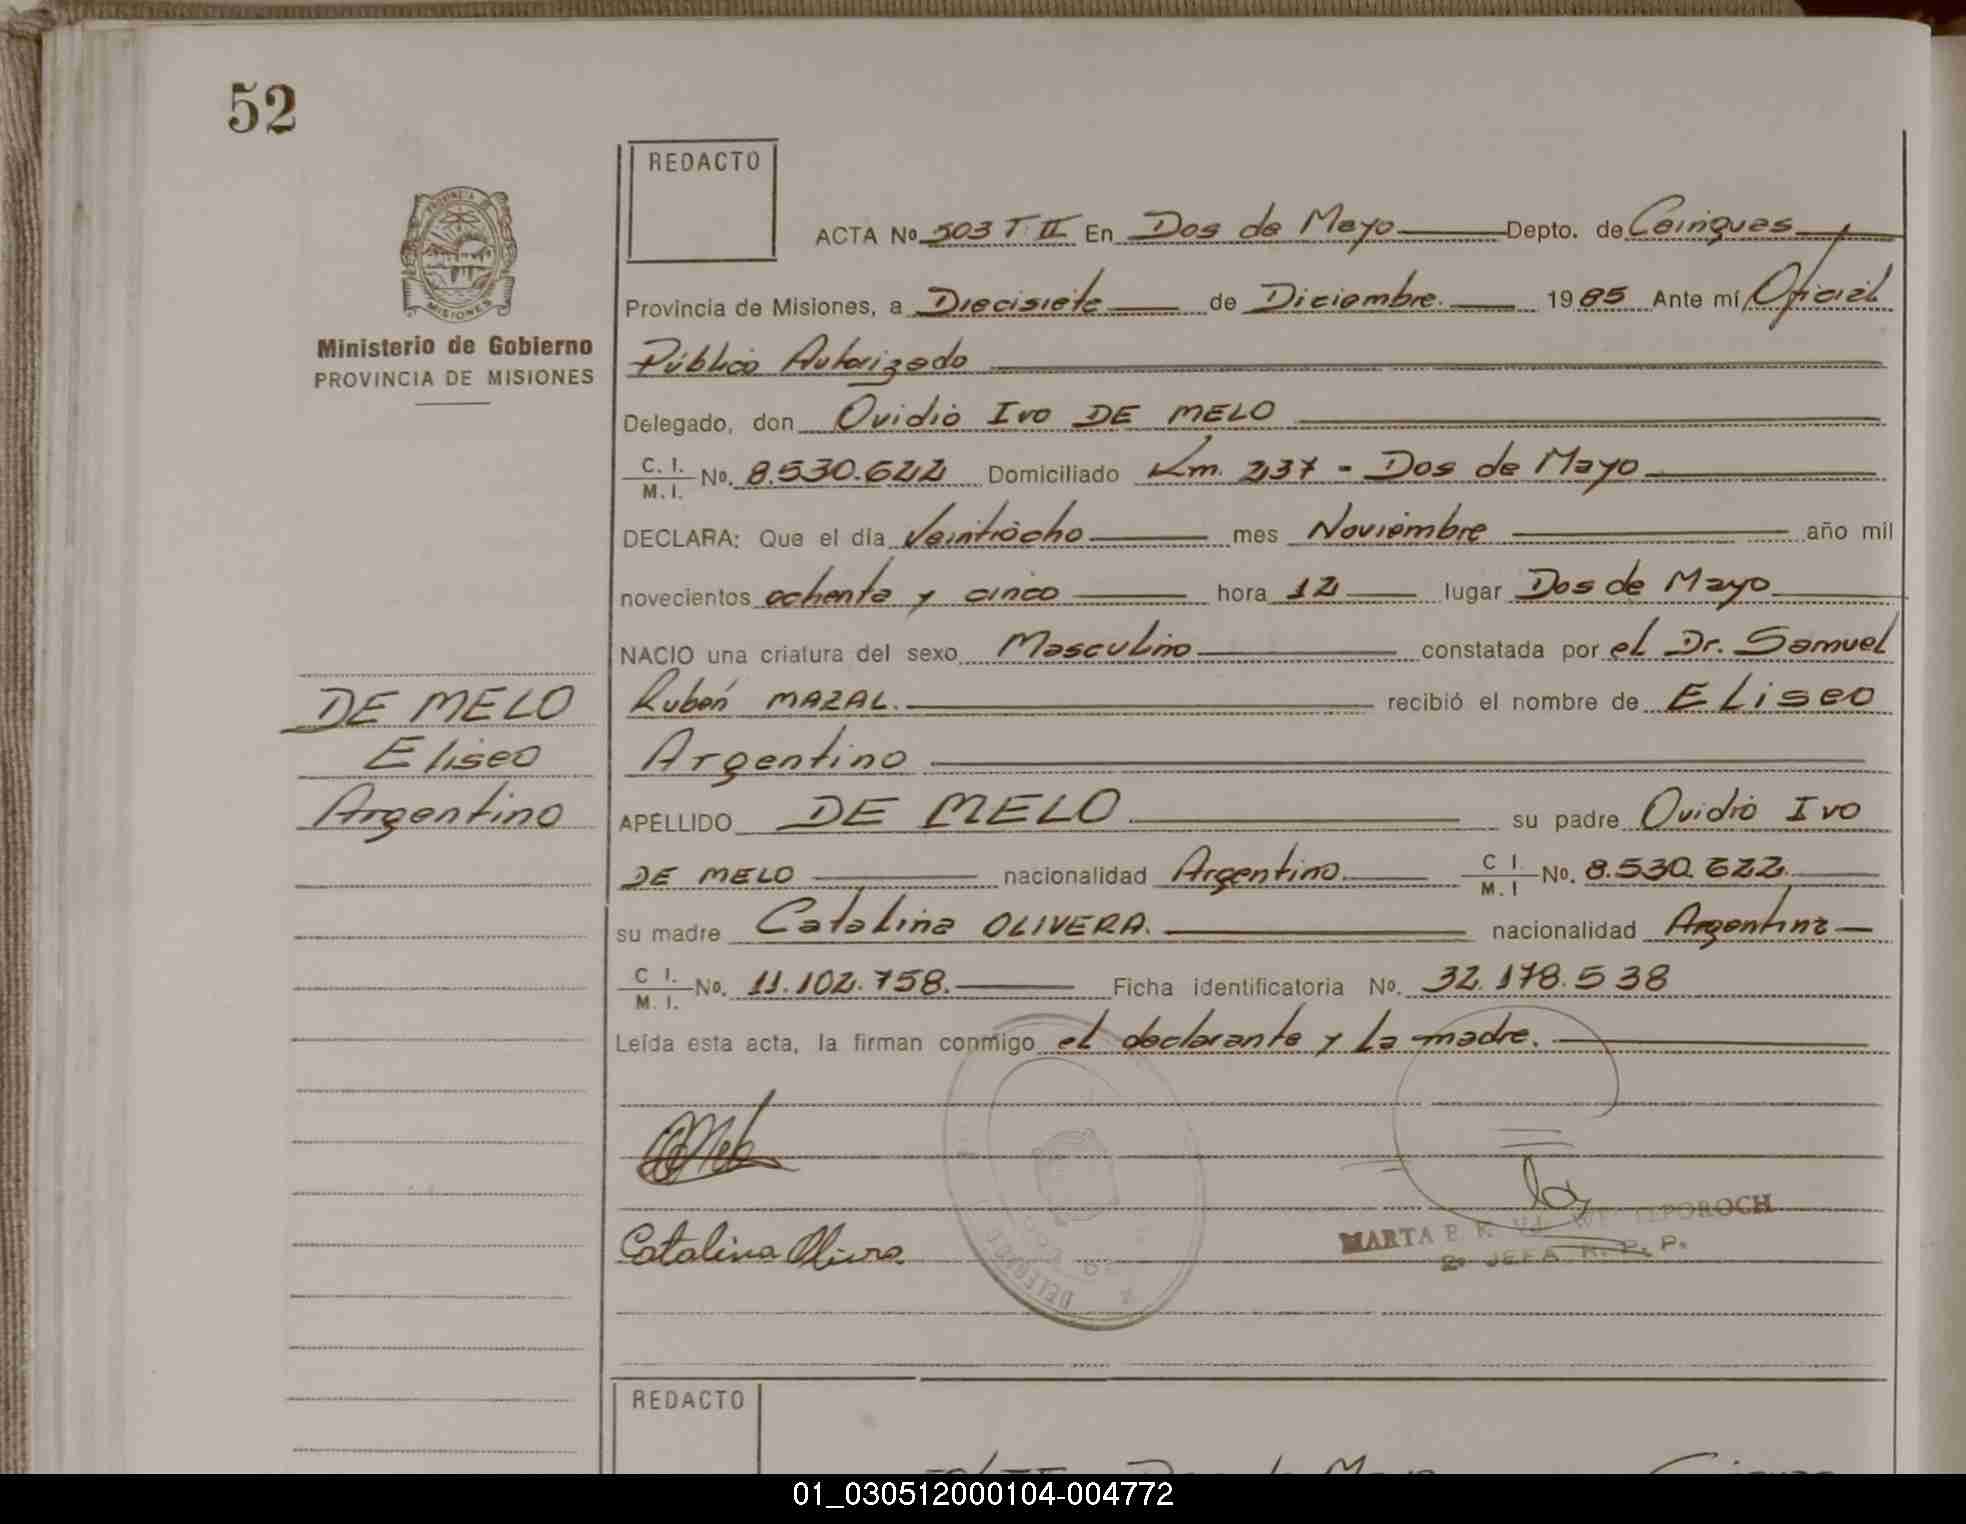 52
REDACTO
PROVINCIA DE
MISIONES
Ministerio de Gobierno
PROVINCIA DE MISIONES
ACTA Nº 503 T II En Dos de Mayo Depto. de Cainguas
Provincia de Misiones, a Diecisiete de Diciembre. 1985 Ante mí Oficial
Público Autorizado
Delegado, don Ovidio Ivo DE MELO
C. I. M. I. No. 8.530.622 Domiciliado Km. 237 - Dos de Mayo
DECLARA: Que el día Veintiocho mes Noviembre año mil
novecientos ochenta y cinco hora 12 lugar Dos de Mayo
NACIO una criatura del sexo Masculino constatada por el Dr. Samuel
Rubén MAZAL. recibió el nombre de ELiseo
Argentino
APELLIDO DE MELO su padre Ovidio Ivo
DE MELO nacionalidad Argentino. C I. M. I No. 8.530.622.
su madre Catalina OLIVERA. nacionalidad Argentina
C I. M. I. No. 11.102.758. Ficha identificatoria No. 32.178.538
Leída esta acta, la firman conmigo el declarante y la madre.
DE MELO
Eliseo
Argentino
Catalina Olivera
MARTA
2º JEFA R. P. P.
REDACTO
01_030512000104-004772